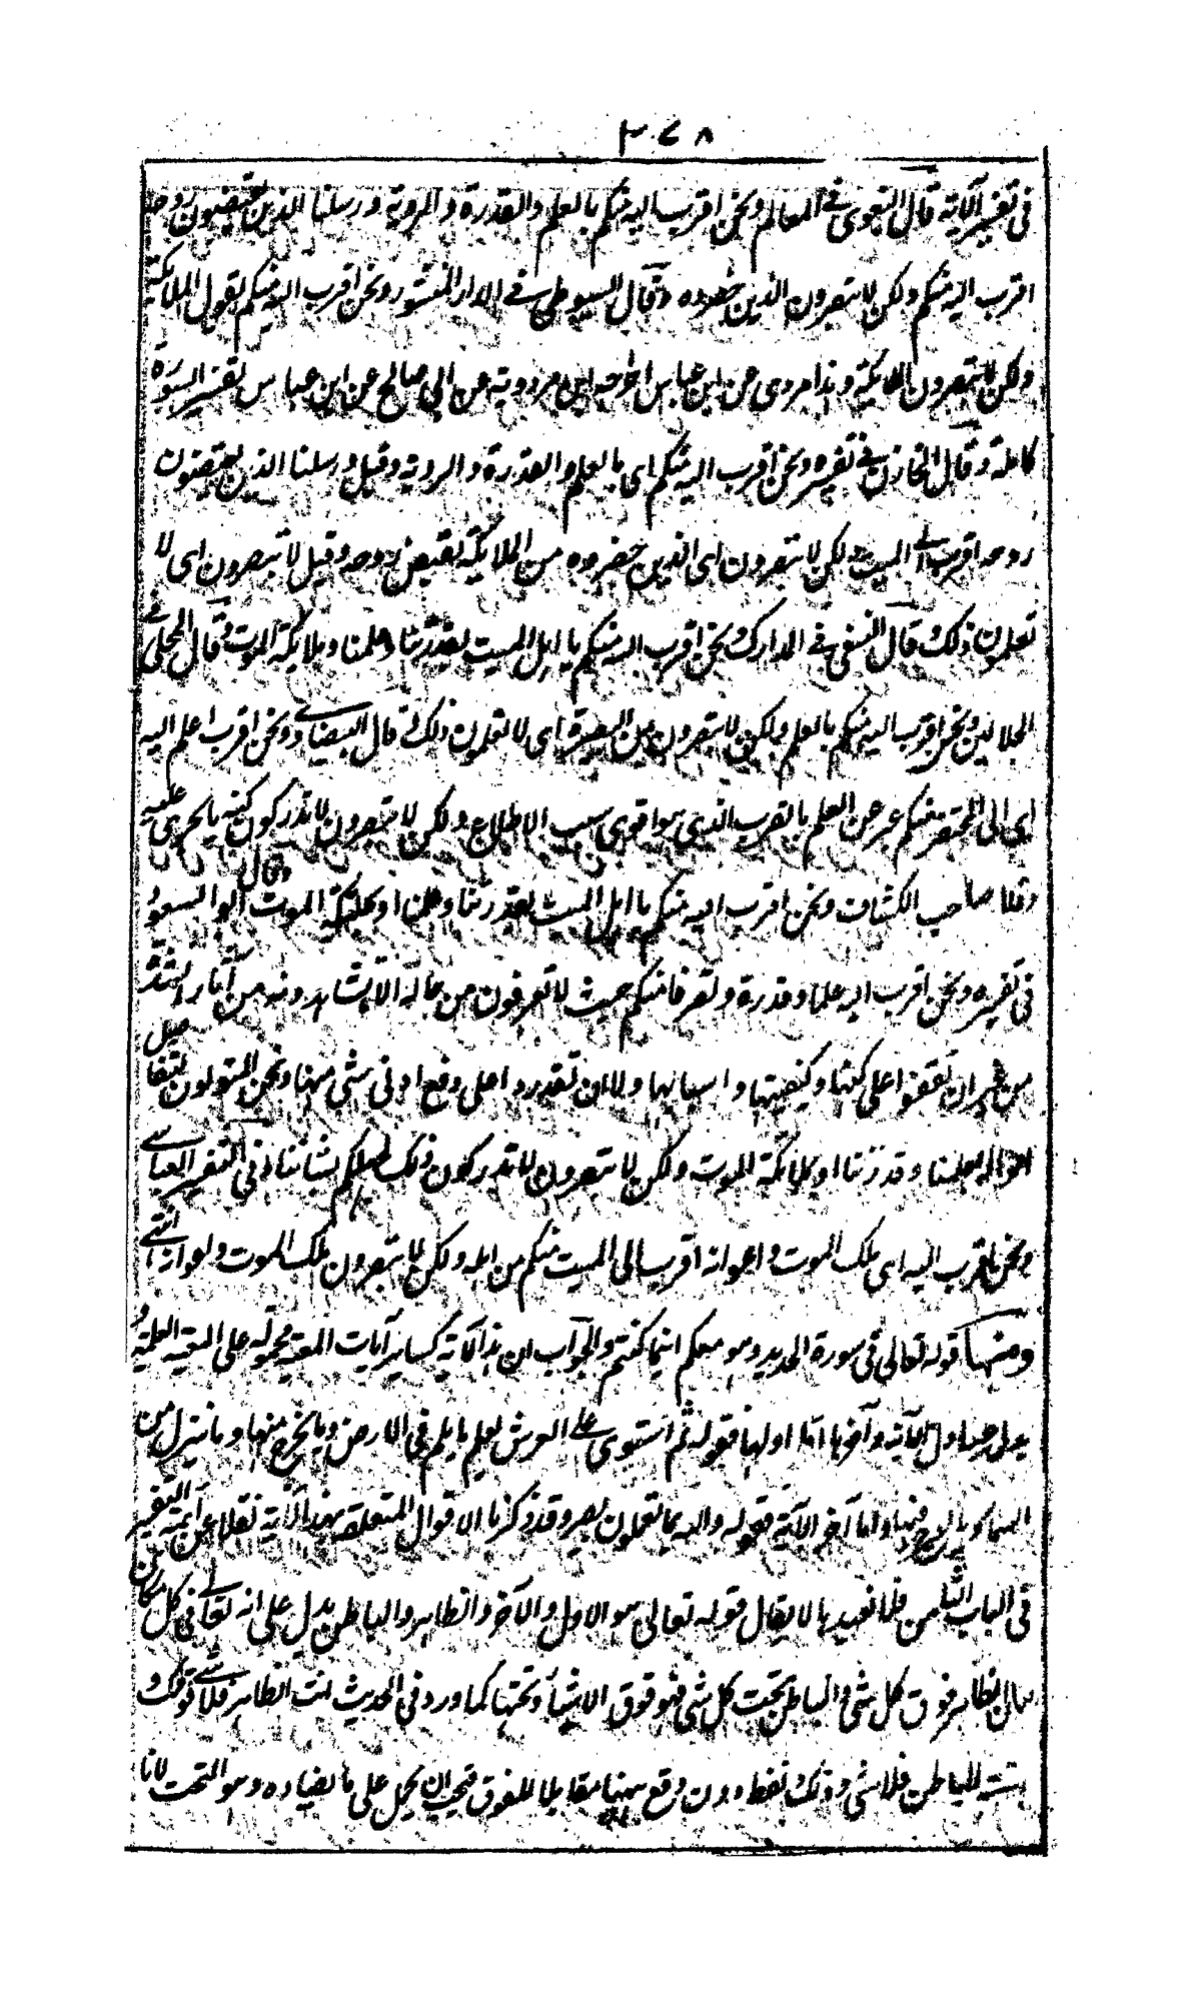 ٣٤٨
فى تفسير الآية قال البغوى فى المعالم ونحن اقرب اليه منكم بالعلم والقدرة والروية ورسلنا الذين يقبضون روحه
اقرب اليه منكم ولكن لا تبصرون الذين حضروه وقال السيوطى فى الدر المنثور ونحن اقرب اليه منكم يقول الملائكة
ولكن لا تبصرون الملائكة وهذا مروى عن ابن عباس اخرجه ابن مردوية عن ابى صالح عن ابن عباس تفسير السورة
كاملة وقال الخازن فى تفسيره ونحن اقرب اليه منكم اى بالعلم والقدرة والروية وقيل ورسلنا الذين يقبضون
روحه اقرب الى الميت ولكن لا تبصرون اى الذين حضروه من الملايكة لقبض روحه وقيل لا تبصرون اى لا
تعلمون ذلك وقال النسفى فى المدارك ونحن اقرب اليه منكم يا اهل الميت بقدرتنا وعلمنا وملايكة الموت وقال المحلى فى
الجلالين ونحن اقرب اليه منكم بالعلم ولكن لا تبصرون من البصيرة اى لا تعلمون ذلك وقال البيضاوى ونحن اقرب اعلم اليه
اى الى المحتضر منكم عبر عن العلم بالقرب الذى هو اقوى سبب الاطلاع ولكن لا تبصرون لا تدركون كنه ما يجرى عليه
وقال صاحب الكشاف ونحن اقرب اليه منكم يا اهل الميت بقدرتنا وعلمنا او بملئكة الموت وقال ابو السعود
فى تفسيره ونحن اقرب اليه علما وقدرة وتصرفا منكم حيث لا تعرفون من حاله الا ما تشاهدونه من آثار الشدة
من غير ان تقفوا على كنهها وكيفيتها واسبابها ولا ان تقدروا على دفع ادنى شى منها ونحن المتولون لتفاصيل
احواله بعلمنا وقدرتنا او بملائكة الموت ولكن لا تبصرون لا تدركون ذلك لجهلكم بشاننا وفى التفسير العباسى
ونحن اقرب اليه اى ملك الموت واعوانه اقرب الى الميت منكم من اهله ولكن لا تبصرون ملك الموت واعوانه انتهى
ومنها قوله تعالى فى سورة الحديد وهو معكم اينما كنتم والجواب ان هذه الآية كساير آيات المعية محمولة على المعية العلمية و
يدل عليه اول الآية وآخرها اما اولها فقوله ثم استوى على العرش يعلم ما يلج فى الارض وما يخرج منها وما ينزل من
السماء وما يعرج فيها واما آخر الآية فقوله والله بما تعملون بصير وقد ذكرنا الاقوال المتعلقة بهذه الآية نقلا عن ائمة التفسير
فى الباب الثامن فلا نعيدها لا يقال قوله تعالى هو الاول والآخر والظاهر والباطن يدل على انه تعالى فى كل مكان
فان الظاهر فوق كل شى والباطن تحت كل شى فهو فوق الاشياء وتحتها كما ورد فى الحديث انت الظاهر فلا شى فوقك و
انت الباطن فلا شى دونك ولفظ دون وقع ههنا مقابلا للفوق فيجب ان يحمل على ما يضاده وهو التحت لانا